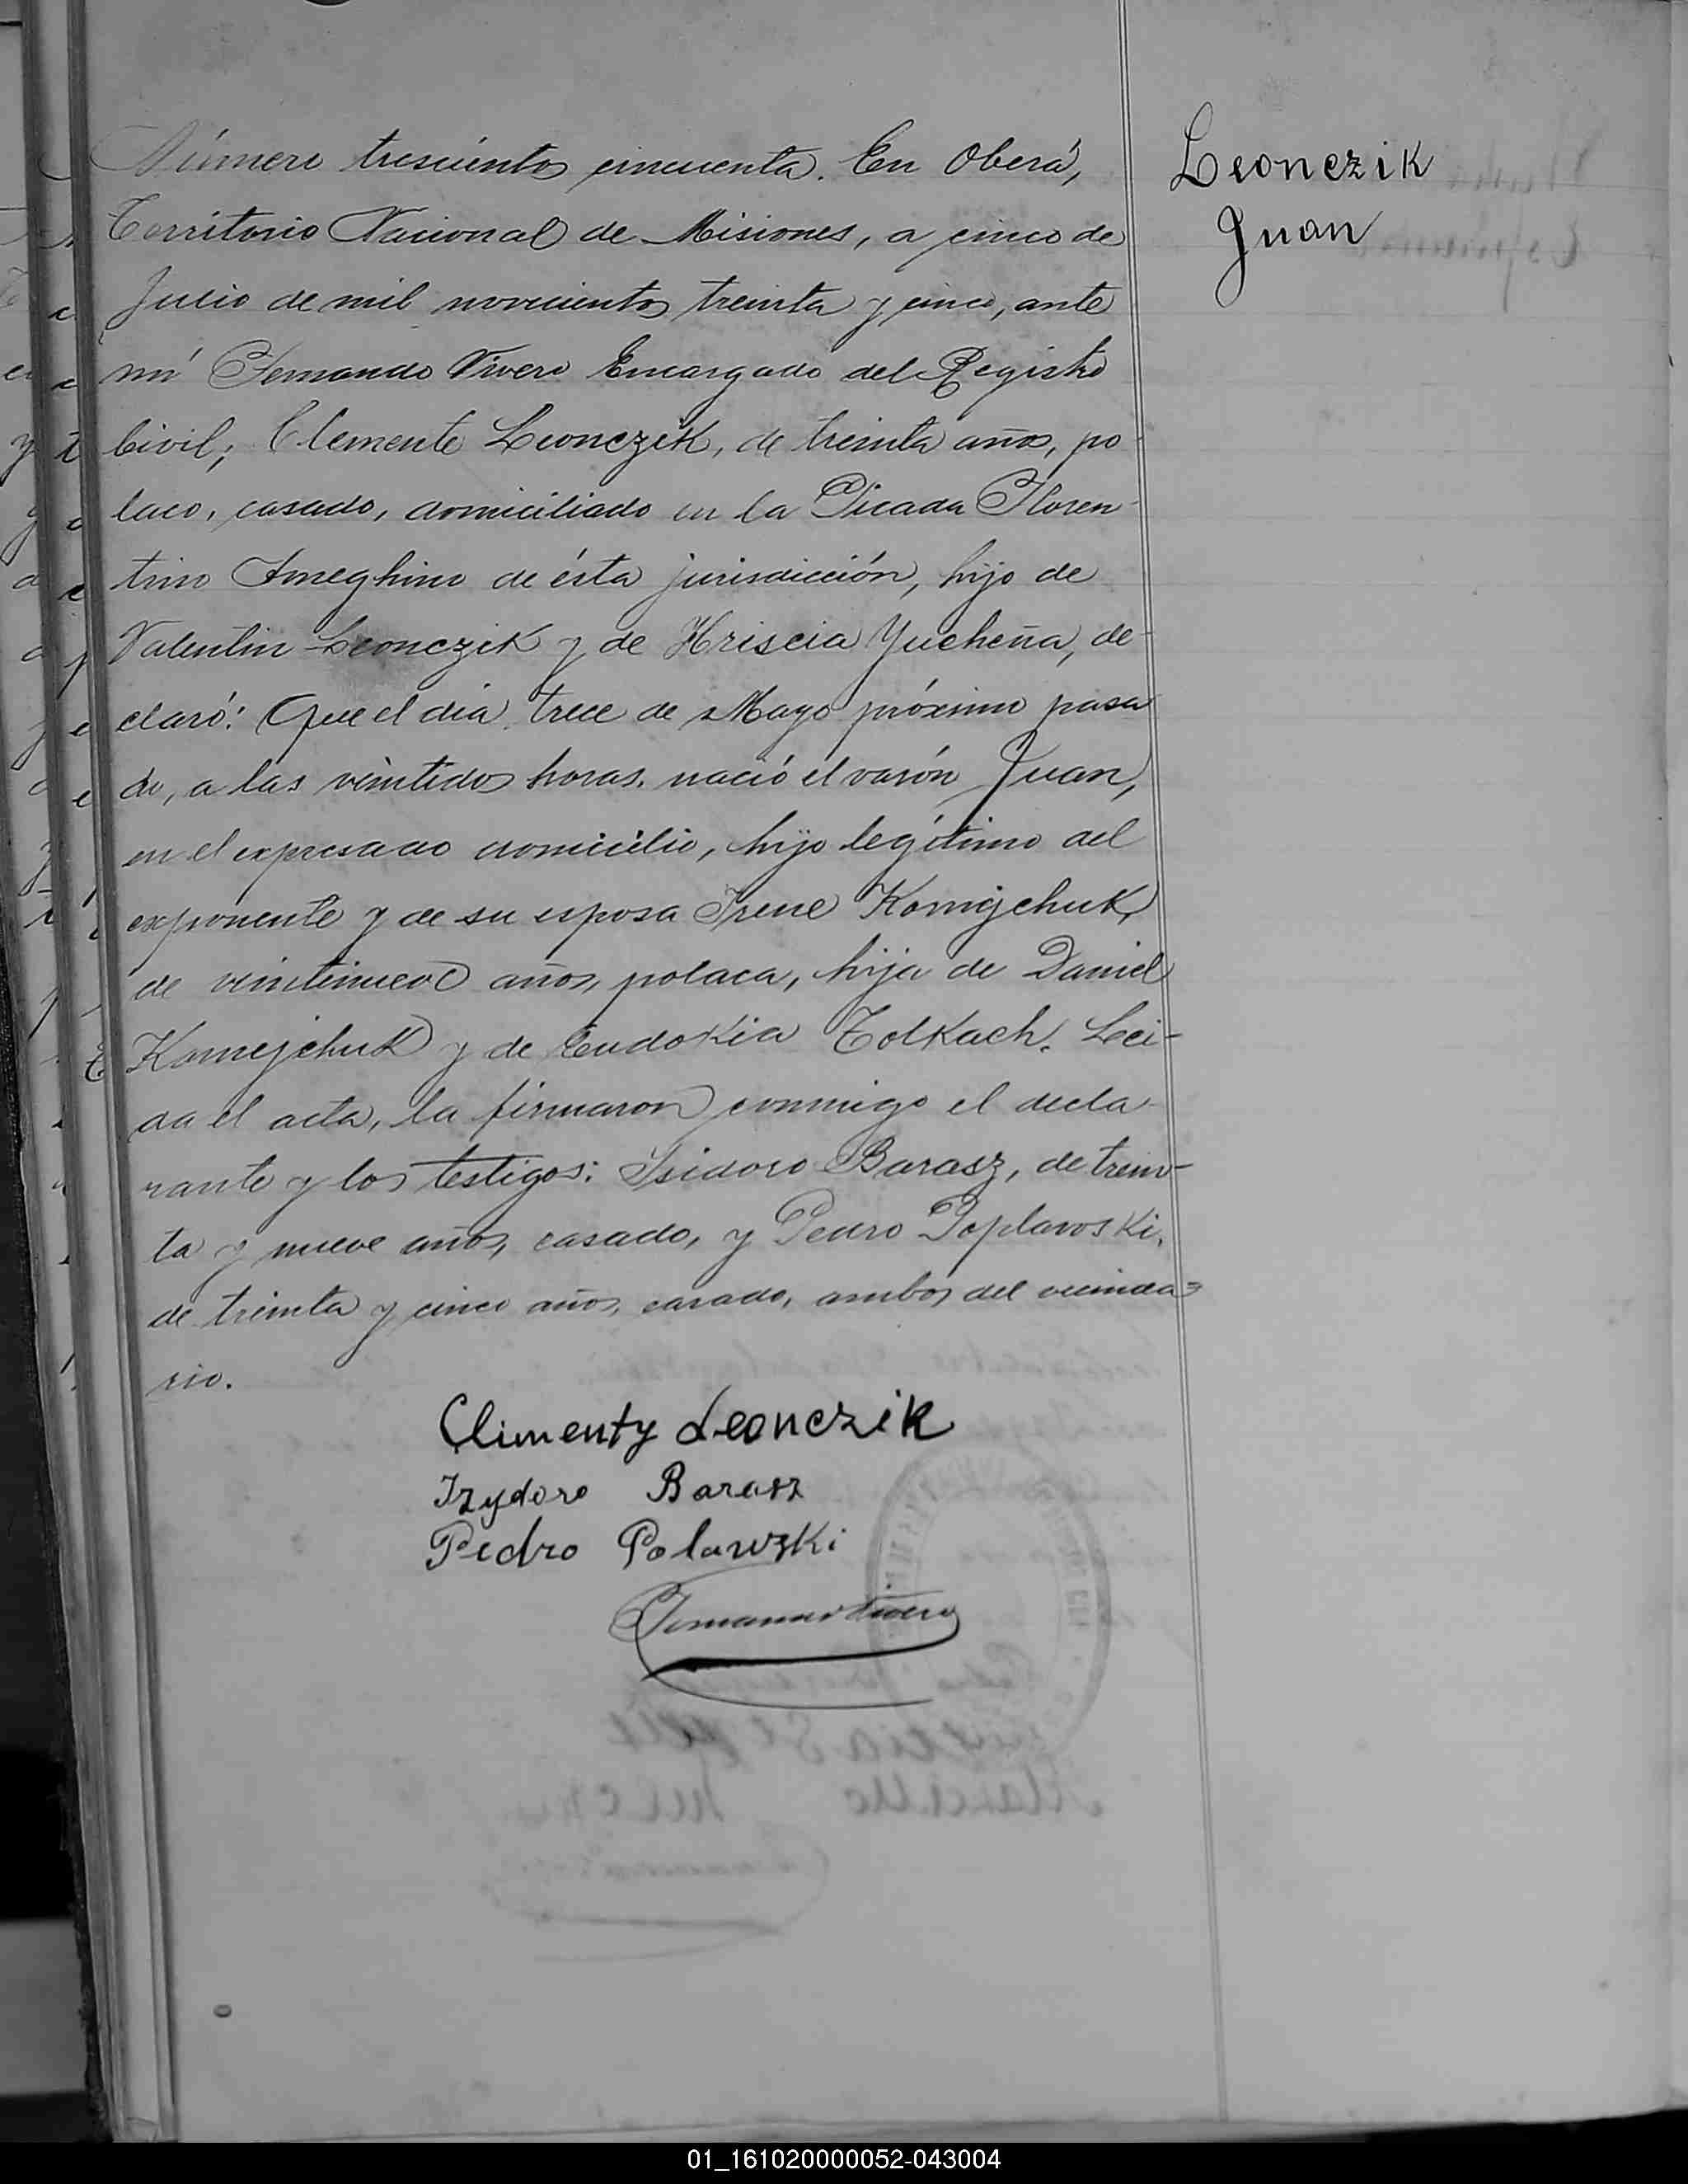 Número trescientos cincuenta. En Oberá,
Territorio Nacional de Misiones, a cinco de
Julio de mil novecientos treinta y cinco, ante
mí Fernando Vivero Encargado del Registro
Civil; Clemente Leonczik, de treinta años, po-
laco, casado, domiciliado en la Picada Floren-
tino Ameghino de ésta jurisdicción, hijo de
Valentin Leonczik y de Hriscia Yucheña, de-
claró: Que el día trece de Mayo próximo pasa
do, a las veintidos horas, nació el varón Juan,
en el expresado domicilio, hijo legítimo del
exponente y de su esposa Irene Komejchuk,
de veintinueve años, polaca, hija de Daniel
Komejchuk y de Eudokia Tolkach. Lei-
da el acta, la firmaron conmigo el decla-
rante y los testigos: Isidoro Barasz, de trein-
ta y nueve años, casado, y Pedro Poplavoski,
de treinta y cinco años, casado, ambos del vecinda=
rio.
Climenty Leonczik
Izydoro Barasz
Pedro Polawzki
Fernando Vivero
Leonczik
Juan
01_161020000052-043004